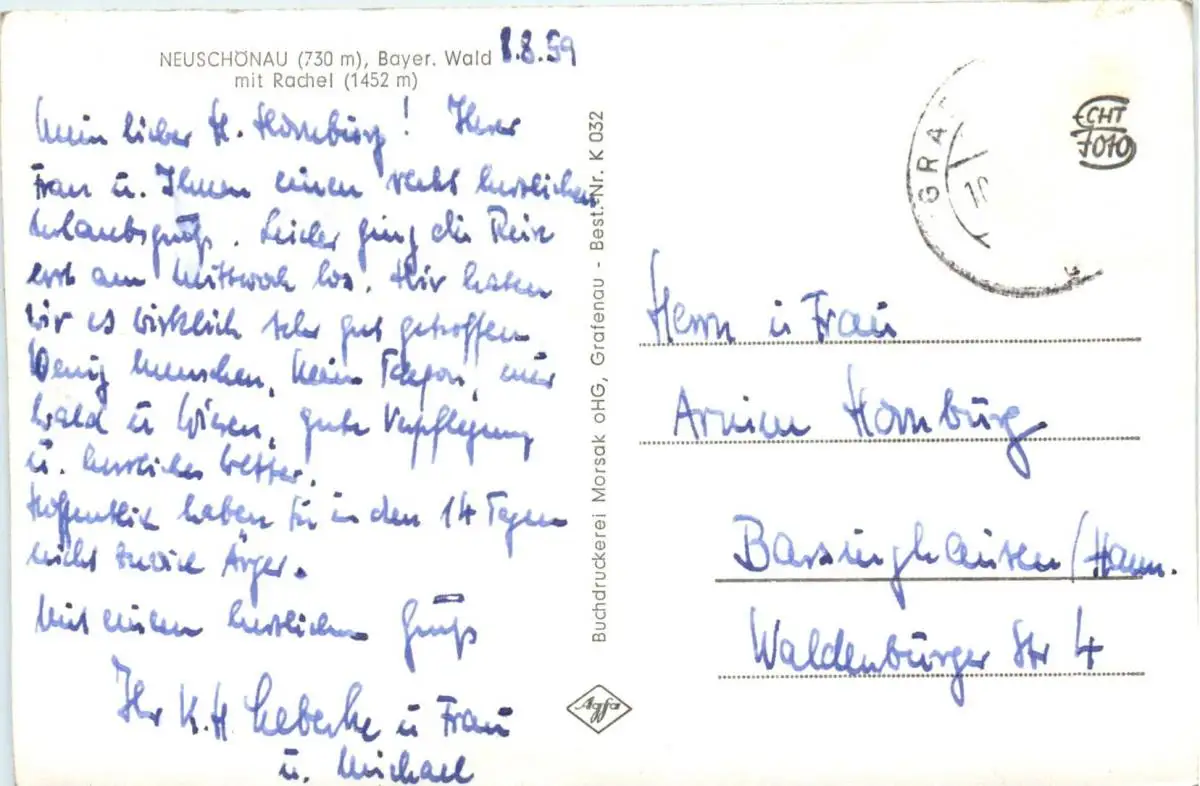 NEUSCHÖNAU (730 m), Bayer. Wald
mit Rachel (1452 m)
8.8.59
Mein lieber H. Homburg! Ihrer
Frau u. Ihnen einen recht herzlichen
Urlaubsgruß. Leider ging die Reise
erst am Mittwoch los. Hir haben
wir es wirklich sehr gut getroffen
Wenig Menschen, kein Telefon, nur
Wald u Wiesen, gute Verpflegung
u. herrliches Wetter.
Hoffentlich haben Sie in den 14 Tagen
nicht zuviel Ärger.
Mit einem herzlichen Gruß
Ihr K.H. u Frau
u. Michael
Buchdruckerei Morsak oHG, Grafenau - Best.-Nr. K 032
Agfa
GRA
10
ECHT
FOTO
Herrn u Frau
Armin Homburg
Barsinghausen/Hann.
Waldenburger Str 4